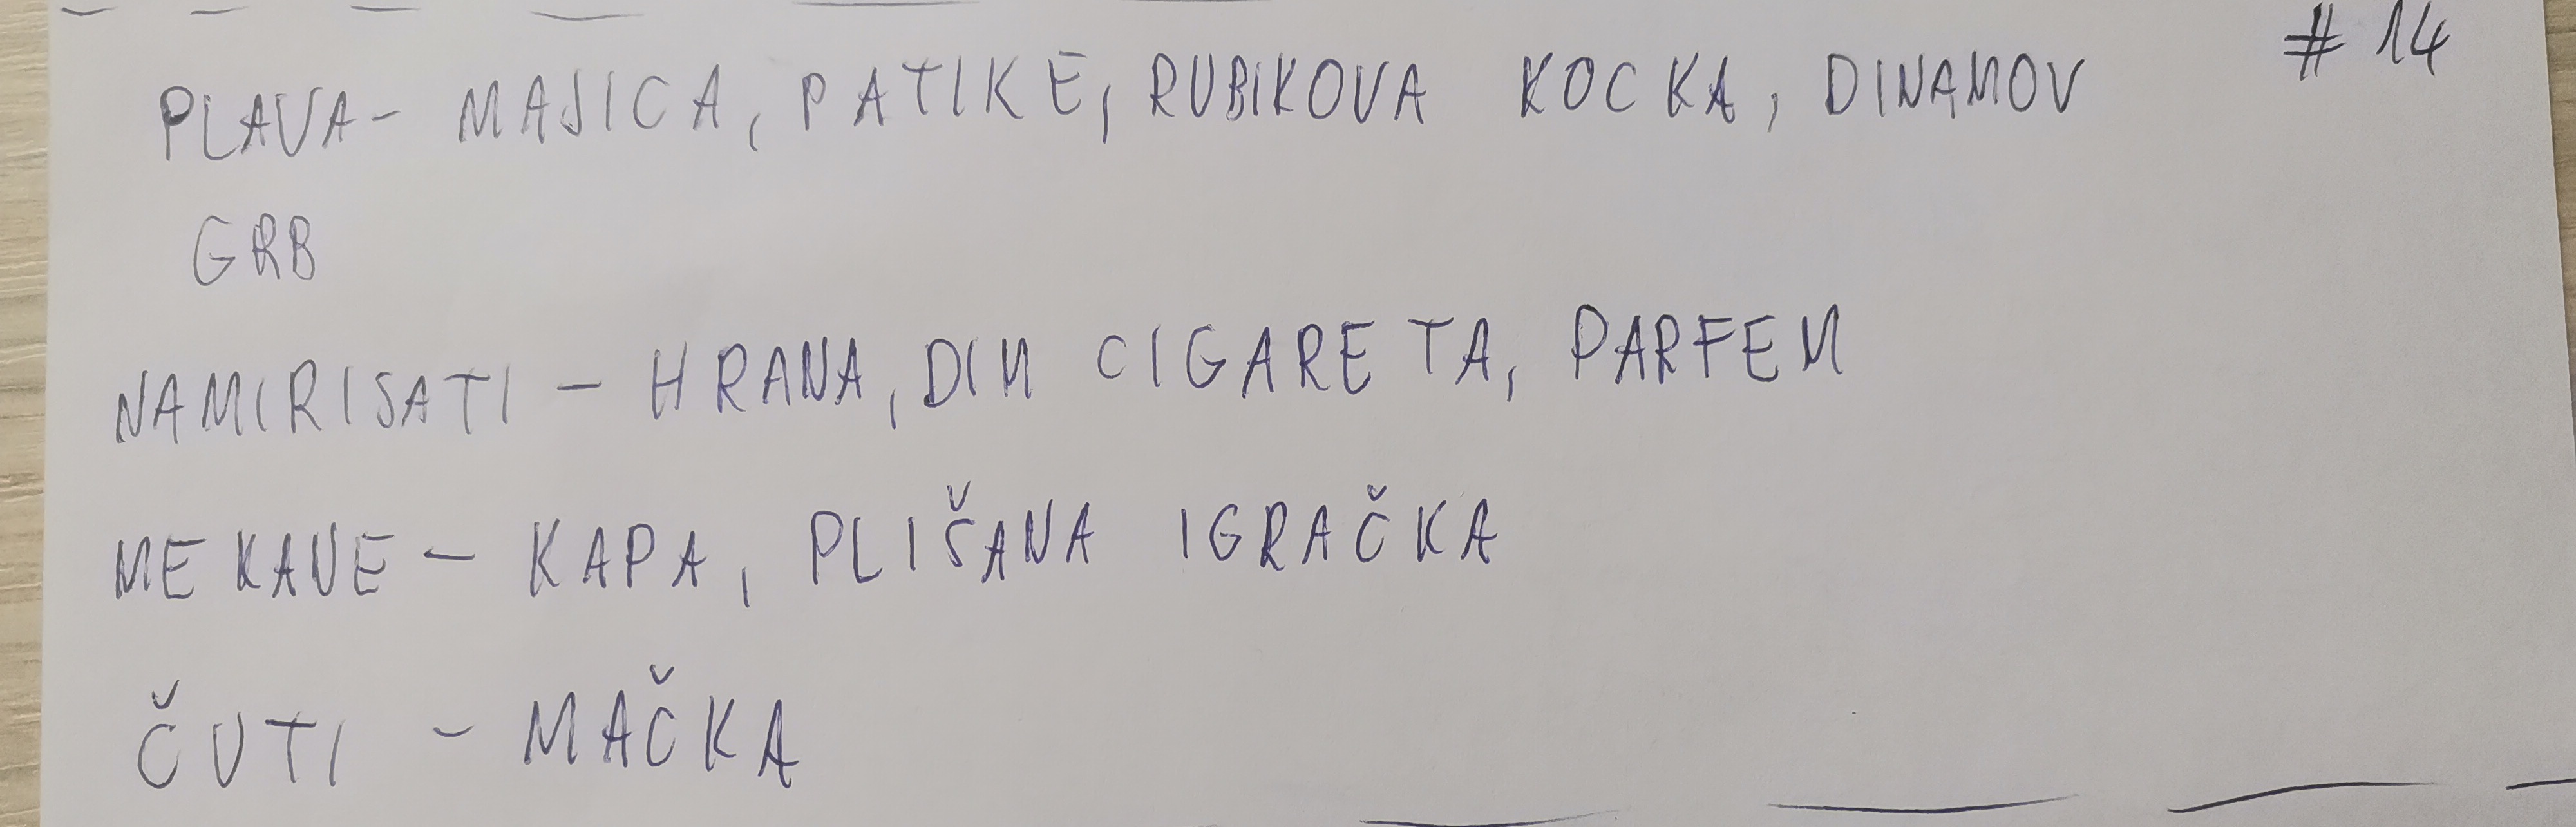 # 14
PLAVA- MAJICA, PATIKE, RUBIKOVA KOCKA, DINAMOV
GRB
NAMIRISATI - HRANA, DIM CIGARETA, PARFEM
MEKANE - KAPA, PLIŠANA IGRAČKA
ČUTI - MAČKA